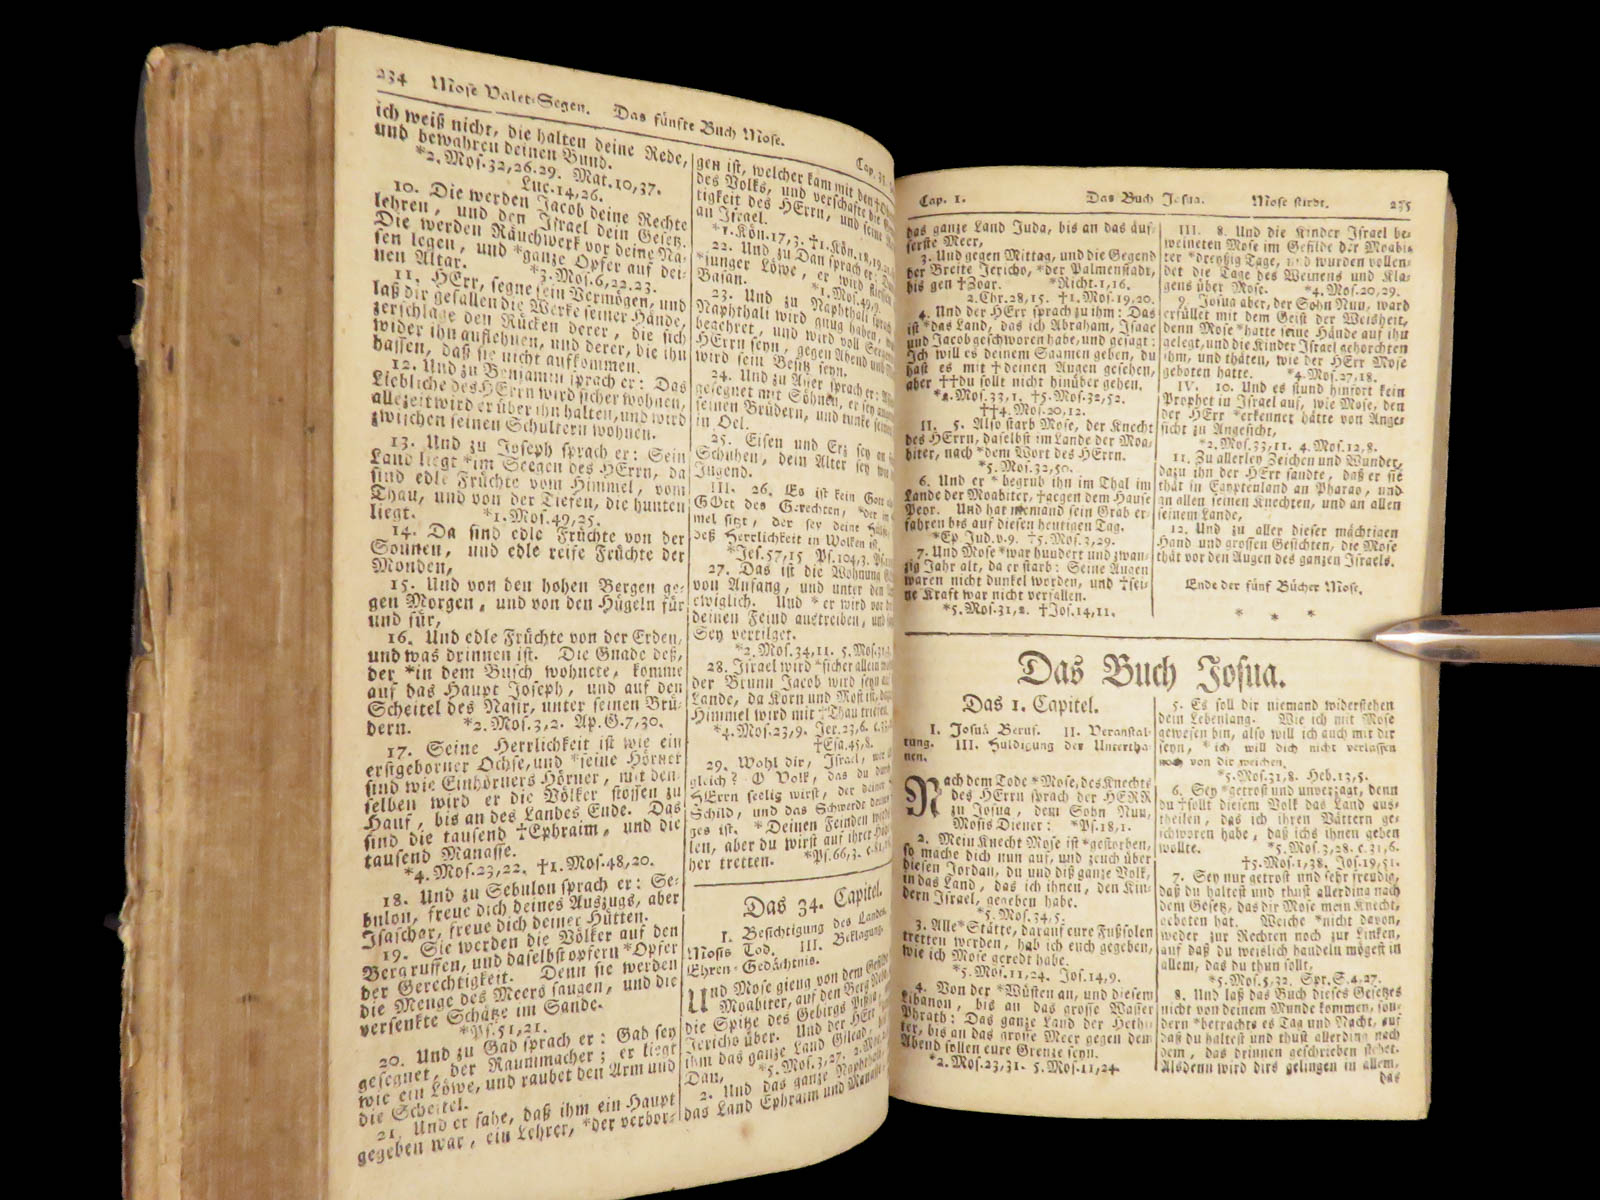 234 Mose Valet-Segen. Das fünfte Buch Mose. Cap. 33.
ich weiß nicht, die halten deine Rede,
und bewahren deinen Bund.
*2. Mos. 32, 26. 29. Mat. 10, 37.
Luc. 14, 26.
10. Die werden Jacob deine Rechte
lehren, und den Israel dein Gesetz.
Die werden Räuchwerk vor deine Na-
sen legen, und *ganze Opfer auf dei-
nen Altar. *3. Mos. 6, 22. 23.
11. HErr, segne sein Vermögen, und
laß dir gefallen die Werke seiner Hände,
zerschlage den Rücken derer, die sich
wider ihn auflehnen, und derer, die ihn
hassen, daß sie nicht aufkommen.
12. Und zu Benjamin sprach er: Das
Liebliche des HErrn wird sicher wohnen,
allezeit wird er über ihn halten, und wird
zwischen seinen Schultern wohnen.
13. Und zu Joseph sprach er: Sein
Land liegt *im Seegen des HErrn, da
sind edle Früchte vom Himmel, vom
Thau, und von der Tiefen, die hunten
liegt. *1. Mos. 49, 25.
14. Da sind edle Früchte von der
Sonnen, und edle reife Früchte der
Monden,
15. Und von den hohen Bergen ge-
gen Morgen, und von den Hügeln für
und für,
16. Und edle Früchte von der Erden,
und was drinnen ist. Die Gnade deß,
der *in dem Busch wohnete, komme
auf das Haupt Joseph, und auf den
Scheitel des Nasir, unter seinen Brü-
dern. *2. Mos. 3, 2. Ap. G. 7, 30.
17. Seine Herrlichkeit ist wie ein
erstgeborner Ochse, und *seine Hörner
sind wie Einhörners Hörner, mit den-
selben wird er die Völker stossen zu
Hauf, bis an des Landes Ende. Das
sind die tausend †Ephraim, und die
tausend Manasse.
*4. Mos. 23, 22. †1. Mos. 48, 20.
18. Und zu Sebulon sprach er: Se-
bulon, freue dich deines Auszugs, aber
Isaschar, freue dich deiner Hütten.
19. Sie werden die Völker auf den
Berg ruffen, und daselbst opfern *Opfer
der Gerechtigkeit. Denn sie werden
die Menge des Meers saugen, und die
versenkte Schätze im Sande.
*Ps. 51, 21.
20. Und zu Gad sprach er: Gad sey
gesegnet, der Raummacher; er liegt
wie ein Löwe, und raubet den Arm und
die Scheitel.
21. Und er sahe, daß ihm ein Haupt
gegeben war, ein Lehrer, *der verbor-
gen ist, welcher kam mit den
des Volks, und verschafte die
tigkeit des HErrn, und seine
an Israel.
*1. Kön. 17, 3. †1. Kön. 18, 19.
22. Und zu Dan sprach er:
*junger Löwe, er wird
Basan. *1. Mos. 49, 9.
23. Und zu Naphthali sprach
Naphthali wird gnug haben,
begehret, und wird voll Seegens
HErrn seyn, gegen Abend und
wird sein Besitz seyn.
24. Und zu Asser sprach er:
gesegnet mit Söhnen, er sey
seinen Brüdern, und tunke seinen
in Oel.
25. Eisen und Erz sey an
Schuhen, dein Alter sey wie
Jugend.
III. 26. Es ist kein Gott
GOtt des Gerechten, *der im
mel sitzt, der sey deine
deß Herrlichkeit in Wolken ist.
*Jes. 57, 15 Ps. 104, 3.
27. Das ist die Wohnung
von Anfang, und unter den
ewiglich. Und *er wird vor
deinen Feind austreiben, und
Sey vertilget.
*2. Mos. 34, 11. 5. Mos.
28. Israel wird *sicher allein
der Brunn Jacob wird seyn
Lande, da Korn und Most ist,
Himmel wird mit †Thau triefen.
*4. Mos. 23, 9. Jer. 23, 6.
†Esa. 45, 8.
29. Wohl dir, Israel, wer
gleich? O Volk, das du durch
HErrn seelig wirst, der deiner
Schild, und das Schwerdt deines
ges ist. *Deinen Feinden
len, aber du wirst auf ihrer
her tretten. *Ps. 66, 3.
Das 34. Capitel.
I. Besichtigung des Landes.
Mosis Tod. III. Beklagung
Ehren-Gedächtnis.
Und Mose gieng von dem Gefilde
Moabiter, auf den Berg Nebo,
die Spitze des Gebirgs Pisga,
Jericho über. Und der HErr
ihm das ganze Land Gilead, bis
Dan, *5. Mos. 3, 27.
2. Und das ganze Naphthali,
das Land Ephraim und Manasse,
Cap. 1. Das Buch Josua. Mose stirbt. 235
das ganze Land Juda, bis an das äus-
serste Meer,
3. Und gegen Mittag, und die Gegend
der Breite Jericho, *der Palmenstadt,
bis gen †Zoar. *Richt. 1, 16.
2. Chr. 28, 15. †1. Mos. 19, 20.
4. Und der HErr sprach zu ihm: Das
ist *das Land, das ich Abraham, Isaac
und Jacob geschworen habe, und gesagt:
Ich will es deinem Saamen geben, du
hast es mit †deinen Augen gesehen,
aber ††du sollt nicht hinüber gehen.
*2. Mos. 33, 1. †5. Mos. 32, 52.
††4. Mos. 20, 12.
II. 5. Also starb Mose, der Knecht
des HErrn, daselbst im Lande der Moa-
biter, nach *dem Wort des HErrn.
*5. Mos. 32, 50.
6. Und er *begrub ihn im Thal im
Lande der Moabiter, †gegen dem Hause
Peor. Und hat niemand sein Grab er-
fahren bis auf diesen heutigen Tag.
*Ep. Jud. v. 9. †5. Mos. 3, 29.
7. Und Mose *war hundert und zwan-
zig Jahr alt, da er starb: Seine Augen
waren nicht dunkel worden, und †sei-
ne Kraft war nicht verfallen.
*5. Mos. 31, 2. †Jos. 14, 11.
III. 8. Und die Kinder Israel be-
weineten Mose im Gefilde der Moabi-
ter *dreyßig Tage, und wurden vollen-
det die Tage des Weinens und Kla-
gens über Mose. *4. Mos. 20, 29.
9. Josua aber, der Sohn Nun, ward
erfüllet mit dem Geist der Weisheit,
denn Mose *hatte seine Hände auf ihn
gelegt, und die Kinder Israel gehorchten
ihm, und thäten, wie der HErr Mose
geboten hatte. *4. Mos. 27, 18.
IV. 10. Und es stund hinfort kein
Prophet in Israel auf, wie Mose, den
der HErr *erkennet hätte von Ange-
sicht zu Angesicht,
*2. Mos. 33, 11. 4. Mos. 12, 8.
11. Zu allerley Zeichen und Wunder,
dazu ihn der HErr sandte, daß er sie
thät in Egyptenland an Pharao, und
an allen seinen Knechten, und an allen
seinem Lande,
12. Und zu aller dieser mächtigen
Hand und grossen Gesichten, die Mose
thät vor den Augen des ganzen Israels.
Ende der fünf Bücher Mose.
* * *
Das Buch Josua.
Das 1. Capitel.
I. Josuä Beruf. II. Veranstal-
tung. III. Huldigung der Untertha-
nen.
Nach dem Tode *Mose, des Knechts
des HErrn sprach der HERR
zu Josua, dem Sohn Nun,
Mosis Diener: *Ps. 18, 1.
2. Mein Knecht Mose ist *gestorben,
so mache dich nun auf, und zeuch über
diesen Jordan, du und diß ganze Volk,
in das Land, das ich ihnen, den Kin-
dern Israel, gegeben habe.
*5. Mos. 34, 5.
3. Alle *Stätte, darauf eure Fußsolen
tretten werden, hab ich euch gegeben,
wie ich Mose geredt habe.
*5. Mos. 11, 24. Jos. 14, 9.
4. Von der *Wüsten an, und diesem
Libanon, bis an das grosse Wasser
Phrath: Das ganze Land der Hethi-
ter, bis an das grosse Meer gegen dem
Abend sollen eure Grenze seyn.
*2. Mos. 23, 31. 5. Mos. 11, 24.
5. Es soll dir niemand widerstehen
dein Lebenlang. Wie ich mit Mose
gewesen bin, also will ich auch mit dir
seyn, *ich will dich nicht verlassen
noch von dir weichen.
*5. Mos. 31, 8. Heb. 13, 5.
6. Sey *getrost und unverzagt, denn
du †sollt diesem Volk das Land aus-
theilen, das ich ihren Vättern ge-
schworen habe, daß ichs ihnen geben
wollte. *5. Mos. 3, 28. c. 31, 6.
†5. Mos. 1, 38. Jos. 19, 51.
7. Sey nur getrost und sehr freudig,
daß du haltest und thust allerding nach
dem Gesetz, das dir Mose mein Knecht,
geboten hat. Weiche *nicht davon,
weder zur Rechten noch zur Linken,
auf daß du weislich handeln mögest in
allem, das du thun sollt,
*5. Mos. 5, 32. Spr. S. 4, 27.
8. Und laß das Buch dieses Gesetzes
nicht von deinem Munde kommen, son-
dern *betrachte es Tag und Nacht, auf
daß du haltest und thust allerding nach
dem, das drinnen geschrieben stehet.
Alsdenn wird dirs gelingen in allem,
das